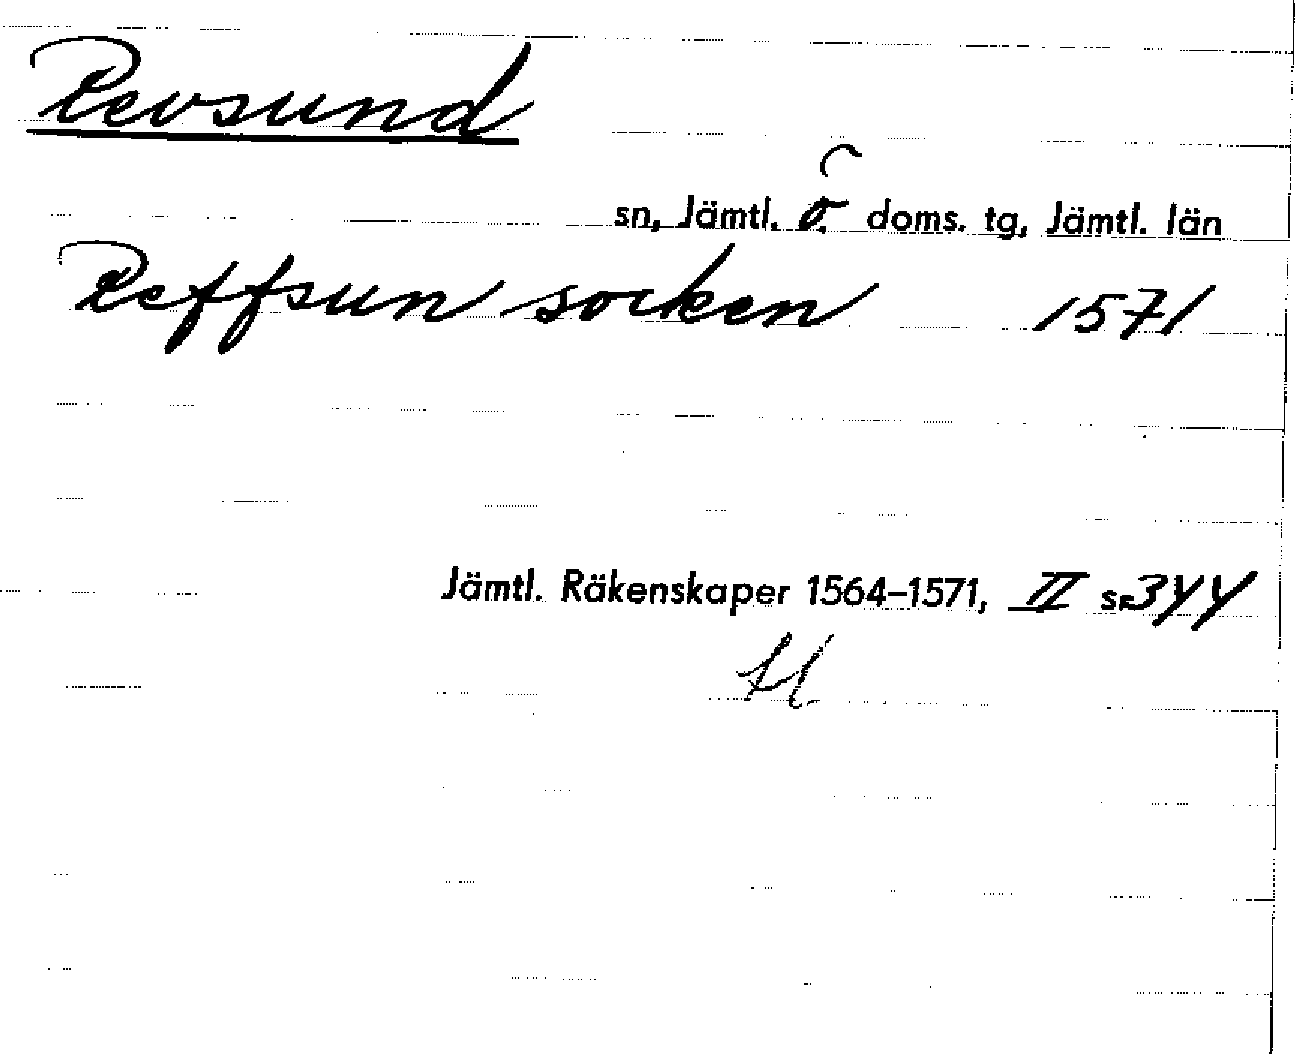 Revsund
sn, Jämtl. ö. doms. tg, Jämtl. län
Reffsun socken 1571
Jämtl. Räkenskaper 1564–1571, II s. 344